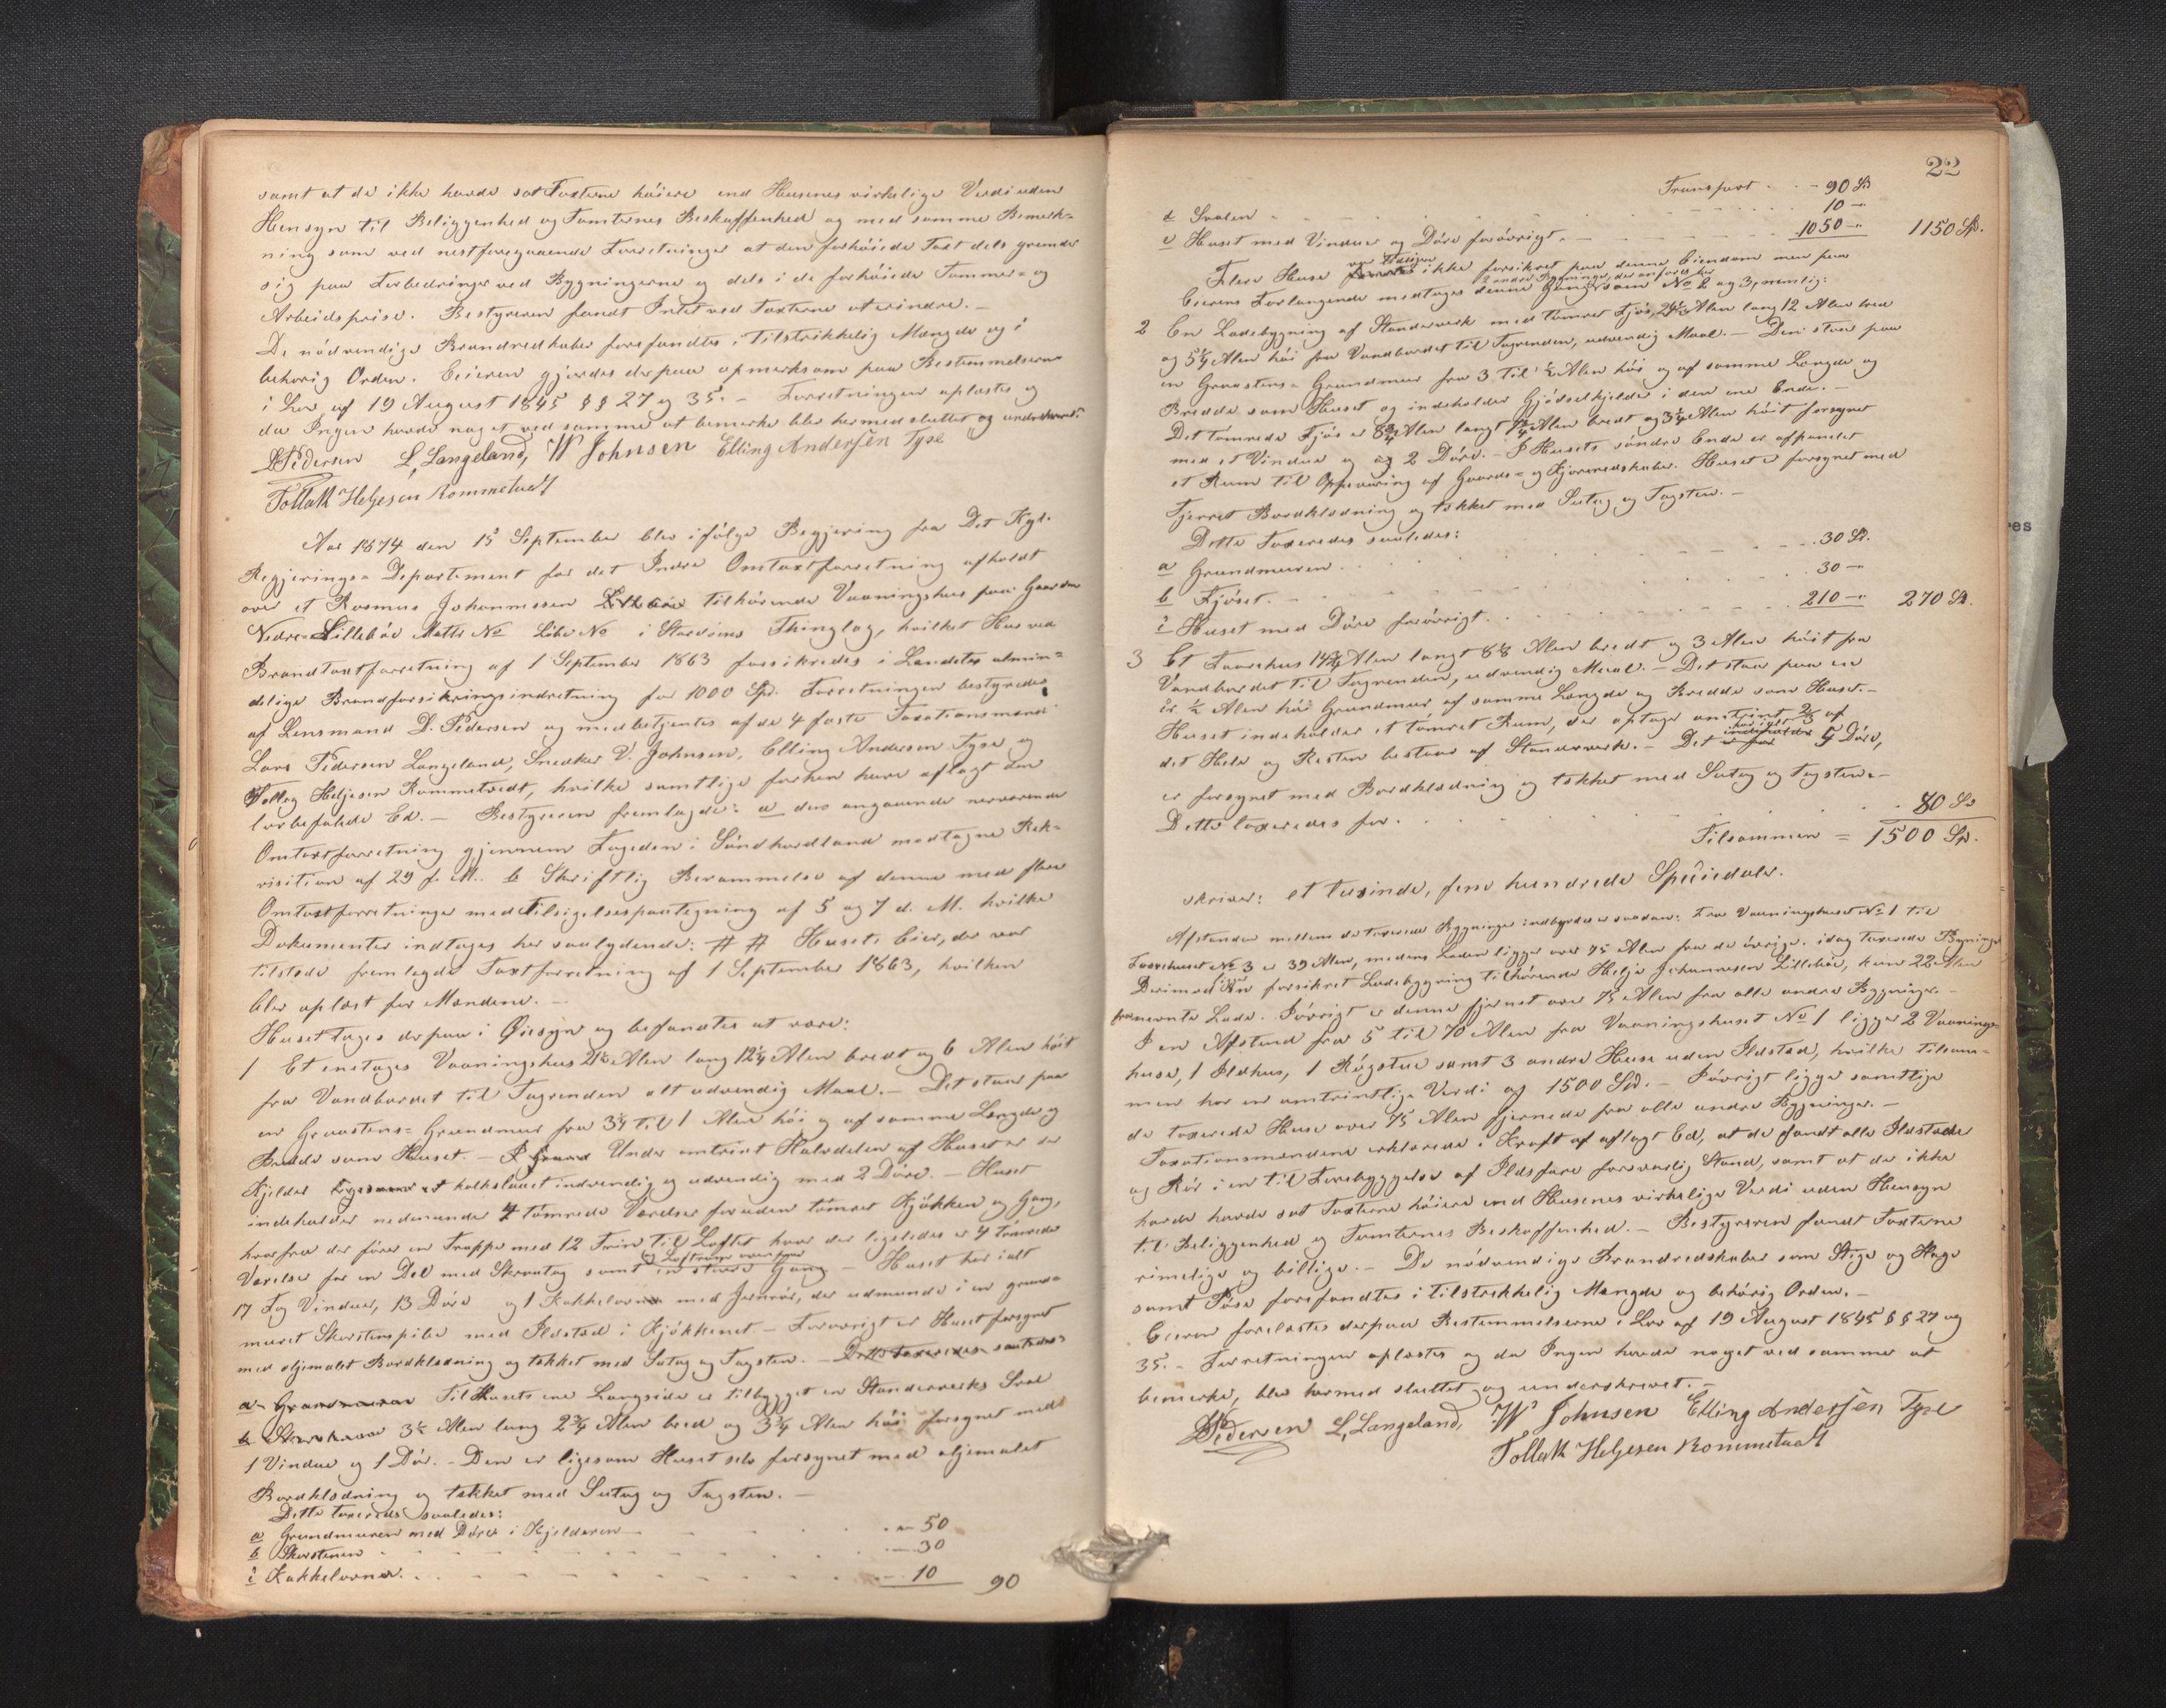 samt at de ikke havde sat Taxterne höiere end Husenes virkelige Verdi uden
Hensyn til Beliggenhed og Tomternes Beskaffenhed og med samme Bemerk-
ning som ved nestforegaaende Forretninger at den forhöiede Taxt dels grunder
sig paa Forbedringer ved Bygningerne og dels i de forhöiede Tømmer- og
Arbeidspriser. Bestyreren fandt Intet ved Taxterne at erindre. -
De nödvendige Brandredskaber forefandtes i Tilstrekkelig Mængde og i
behörig Orden. Eieren gjordes derpaa opmerksom paa Bestemmelserne
i Lov af 19 August 1845 §§ 27 og 35. - Forretningen oplæstes og
da Ingen havde noget ved samme at bemerke blev hermed sluttet og underskrevet
L. Pedersen L. Langeland, W Johnsen Elling Andersen Tyse
Tollak Heljesen Rommetvedt
Aar 1874 den 15 September blev ifölge Begjering fra Det Kgl.
Regjerings- Departement for det Indre Omtaxtforretning afholdt
over et Rasmus Johannessen tilhörende Vaaningshus paa Gaarden
Nedre-Lillebö Matr No Löbe No i Stordöens Thinglag, hvilket Hus ved
Brandtaxtforretning af 1 September 1863 forsikredes i Landets almin-
delige Brandforsikringsindretning for 1000 Spd. Forretningen bestyredes
af Lensmand L. Pedersen og medbetjentes af de 4 faste Taxationsmænd
Lars Pedersen Langeland, Snedker W. Johnsen, Elling Andersen Tyse og
Tollag Heljesen Rommetvedt, hvilke samtlige forhen have aflagt den
lovbefalede Ed. - Bestyreren fremlagde: a den angaaende nerværende
Omtaxtforretning gjennem Fogeden i Söndhordland modtagne Rek-
visition af 29 f. M. b Skriftlig Berammelse af denne med flere
Omtaxtforretninger med Tilsigelsespaategning af 5 og 7 d. M. hvilke
Dokumenter indtages her saalydende: # # Husets Eier, der var
tilstede fremlagde Taxtforretning af 1 September 1863, hvilken
blev oplæst for Mændene. -
Huset toges derpaa i Øiesyn og befandtes at være:
1 Et enetages Vaaningshus 21½ Alen lang 12¼ Alen bredt og 6 Alen höit
fra Vandbordet til Tagrenden alt udvendig Maal. - Det staar paa
en Graastens- Grundmur fra 3½ til 1 Alen höi og af samme Længde og
Bredde som Huset. - Under omtrent Halvdelen af Huset er der
Kjelder kalkslaaet indvendig og udvendig med 2 Döre. - Huset
indeholder nedenunder 4 tömrede Værelser foruden tömret Kjökken og Gang,
hvorfra der förer en Trappe med 12 Trin til Loftet hvor der ligeledes er 4 tömrede
og Loftrum ovenfor
Værelser for en Del med Skraatag samt en större Gang - Huset har ialt
17 Fag Vinduer, 13 Döre og 1 Kakkelovn med Jernrör, der udmunder i en grund-
muret Skorstenspibe med Ildsted i Kjökkenet. - Forövrigt er Huset forsynet
med oljemalet Bordklædning og tekket med Sutag og Tagsten. - Dette taxeredes saaledes:
a Grundmuren Til Husets ene Langside er tilbygget en Standerverks Sval
b 3½ Alen lang 2¾ Alen bred og 3¾ Alen höi forsynet med
1 Vindue og 1 Dör. - Den er ligesom Huset selv forsynet med oljemalet
Bordklædning og tekket med Sutag og Tagsten. -
Dette taxeredes saaledes:
a Grundmuren med Döre i Kjelderen - 50
b Skorstenen - 30
c Kakkelovnen - 10 90
22
Transport - 90 Sp
d Svalen - 10 -
e Huset med Vinduer og Döre forövrigt. - 1050 - 1150 Sp.
var tidligere
Flere Huse ikke forsikret paa denne Eiendom men paa
2 andre Bygninger, der anföres her
Eierens Forlangende medtoges denne Gang som No 2 og 3, nemlig:
2 En Ladebygning af Standerverk med tömret Fjös, 24½ Alen lang 12 Alen bred
og 5¼ Alen höi fra Vandbordet til Tagrenden, udvendig Maal. - Den staar paa
en Graastens- Grundmur fra 3 til ½ Alen höi og af samme Længde og
Bredde som Huset og indeholder Gjödselkjelder i den ene Ende. -
Det tömrede Fjös er 8¾ Alen langt Alen bredt og 3¼ Alen höit forsynet
med et Vindue og og 2 Döre. - I Husets söndre Ende er afpanelet
et Rum til Opbevaring af Gaards- og Kjöreredskaber. Huset er forsynet med
tjæret Bordklædning og tekket med Sutag og Tagsten. -
Dette taxeredes saaledes:
a Grundmuren - 30 Sp.
b Fjöset. - 30 -
c Huset med Döre forövrigt. 210 - 270 Sp.
3 Et Faarehus 14¾ Alen langt 8½ Alen bredt og 3 Alen höit fra
Vandbordet til Tagrenden, udvendig Maal. - Det staar paa en
½ Alen höi Grundmur af samme Længde og Bredde som Huset. -
Huset indeholder et tömret Rum, der optager omtrent 2/3 af
har ialt
det Hele og Resten bestaar af Standerverk. - Det indeholder 5 Döre,
er forsynet med Bordklædning og tekket med Sutag og Tagsten. -
Dette taxeredes for - 80 Sp
Tilsammen = 1500 Sp.
skriver: et tusinde, fem hundrede Speciedaler.
Afstanden mellem de taxerede Bygninger indbyrdes er saadan: Fra Vaaningshuset No 1 til
Faarehuset No 3 er 39 Alen, medens Laden ligger over 75 Alen fra de övrige idag taxerede Bygninger
Derimod er en forsikret Ladebygning tilhörende Helje Johannesen Lillebö, kun 22 Alen
fra nevnte Lade. Iövrigt er denne fjernet over 75 Alen fra alle andre Bygninger. -
I en Afstand fra 5 til 70 Alen fra Vaaningshuset No 1 ligger 2 Vaanings-
huse, 1 Ildhus, 1 Rögstue samt 3 andre Huse uden Ildsted, hvilke tilsam-
men har en omtrentlig Verdi af 1500 Spd. - Iövrigt ligger samtlige
de taxerede Huse over 75 Alen fjernede fra alle andre Bygninger. -
Taxationsmændene erklærede i Kraft af aflagt Ed, at de fandt alle Ildsteder
og Rör i en til Forebyggelse af Ildsfare forsvarlig Stand, samt at de ikke
havde havde sat Taxterne höiere end Husenes virkelige Verdi uden Hensyn
til Beliggenhed og Tomternes Beskaffenhed. - Bestyreren fandt Taxterne
rimelige og billige. - De nödvendige Brandredskaber som Stige og Hage
samt Pöse forefandtes i tilstrekkelig Mængde og behörig Orden. -
Eieren forelæstes derpaa Bestemmelserne i Lov af 19 August 1845 §§ 27 og
35. - Forretningen oplæstes og da Ingen havde noget ved samme at
bemerke, blev hermed sluttet og underskrevet. -
L Pedersen L. Langeland, W Johnsen Elling Andersen Tyse
Tollak Heljesen Rommetvedt